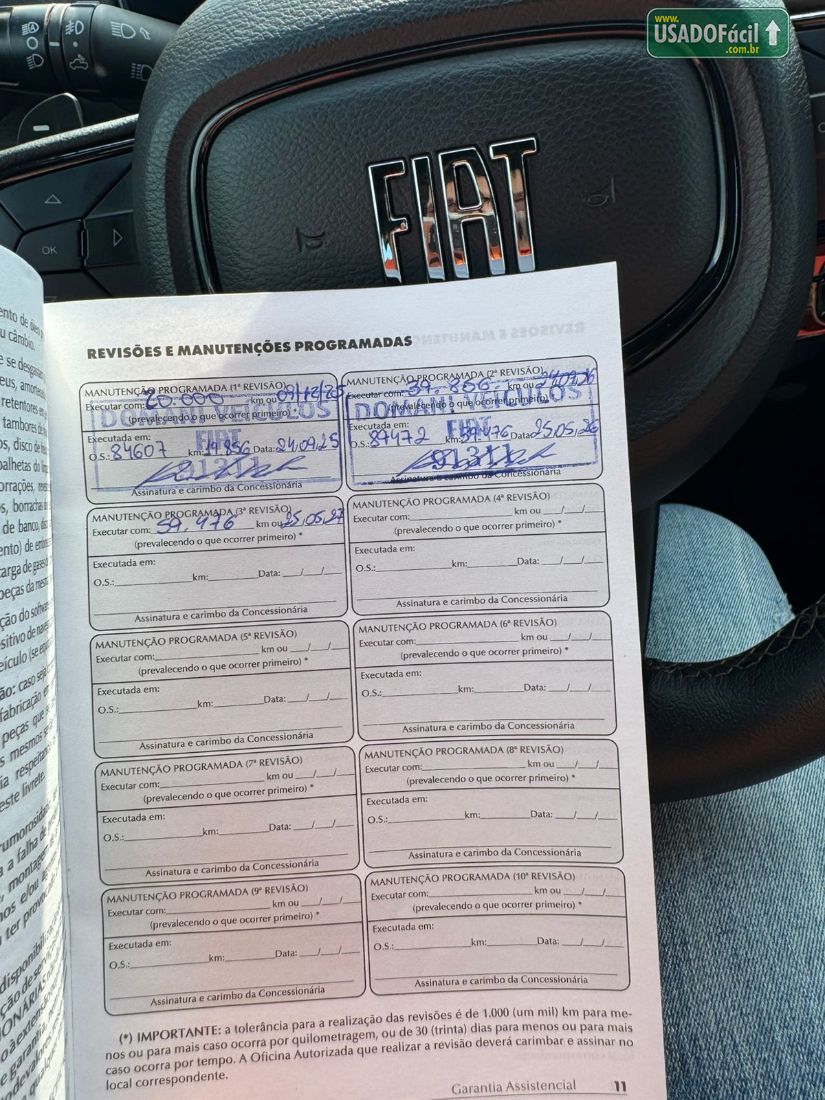 www.
USADOFácil
.com.br
OK
FIAT
REVISÕES E MANUTENÇÕES PROGRAMADAS
MANUTENÇÃO PROGRAMADA (1ª REVISÃO)
Executar com: 20.000 km ou 09/12/25
(prevalecendo o que ocorrer primeiro) *
DOMANI VEICULOS
FIAT
Executada em:
O.S.: 84607 km: 19.856 Data: 24.09.25
Assinatura e carimbo da Concessionária
MANUTENÇÃO PROGRAMADA (2ª REVISÃO)
Executar com: 39.856 km ou 24.09.26
(prevalecendo o que ocorrer primeiro) *
DOMANI VEICULOS
FIAT
Executada em:
O.S.: 87472 km: 39.476 Data: 25.05.26
Assinatura e carimbo da Concessionária
MANUTENÇÃO PROGRAMADA (3ª REVISÃO)
Executar com: 59.476 km ou 25.05.27
(prevalecendo o que ocorrer primeiro) *
Executada em:
O.S.: km: Data: __/__/__
Assinatura e carimbo da Concessionária
MANUTENÇÃO PROGRAMADA (4ª REVISÃO)
Executar com: km ou __/__/__
(prevalecendo o que ocorrer primeiro) *
Executada em:
O.S.: km: Data: __/__/__
Assinatura e carimbo da Concessionária
MANUTENÇÃO PROGRAMADA (5ª REVISÃO)
Executar com: km ou __/__/__
(prevalecendo o que ocorrer primeiro) *
Executada em:
O.S.: km: Data: __/__/__
Assinatura e carimbo da Concessionária
MANUTENÇÃO PROGRAMADA (6ª REVISÃO)
Executar com: km ou __/__/__
(prevalecendo o que ocorrer primeiro) *
Executada em:
O.S.: km: Data: __/__/__
Assinatura e carimbo da Concessionária
MANUTENÇÃO PROGRAMADA (7ª REVISÃO)
Executar com: km ou __/__/__
(prevalecendo o que ocorrer primeiro) *
Executada em:
O.S.: km: Data: __/__/__
Assinatura e carimbo da Concessionária
MANUTENÇÃO PROGRAMADA (8ª REVISÃO)
Executar com: km ou __/__/__
(prevalecendo o que ocorrer primeiro) *
Executada em:
O.S.: km: Data: __/__/__
Assinatura e carimbo da Concessionária
MANUTENÇÃO PROGRAMADA (9ª REVISÃO)
Executar com: km ou __/__/__
(prevalecendo o que ocorrer primeiro) *
Executada em:
O.S.: km: Data: __/__/__
Assinatura e carimbo da Concessionária
MANUTENÇÃO PROGRAMADA (10ª REVISÃO)
Executar com: km ou __/__/__
(prevalecendo o que ocorrer primeiro) *
Executada em:
O.S.: km: Data: __/__/__
Assinatura e carimbo da Concessionária
(*) IMPORTANTE: a tolerância para a realização das revisões é de 1.000 (um mil) km para me-
nos ou para mais caso ocorra por quilometragem, ou de 30 (trinta) dias para menos ou para mais
caso ocorra por tempo. A Oficina Autorizada que realizar a revisão deverá carimbar e assinar no
local correspondente.
Garantia Assistencial 11